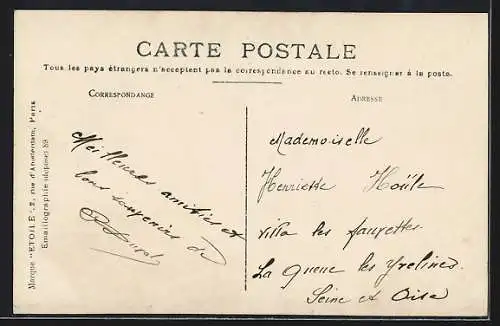 CARTE POSTALE
Tous les pays étrangers n'acceptent pas la correspondance au recto. Se renseigner à la poste.
CORRESPONDANCE
ADRESSE
Marque "ETOILE", rue d'Amsterdam, Paris
Emaillographie déposés 89
Meilleures amitiés et
bons souvenirs de
Mademoiselle
Henriette Hoüle
villa les fauvettes.
La Queue les Yvelines.
Seine et Oise